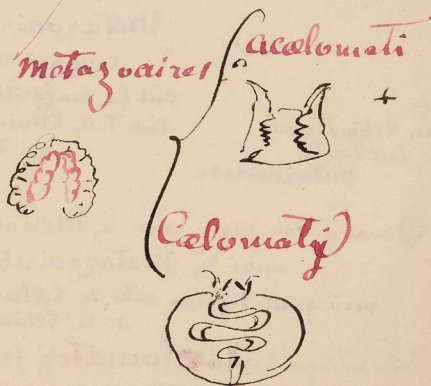 Metazoaires
acœlomati
+
Cœlomati